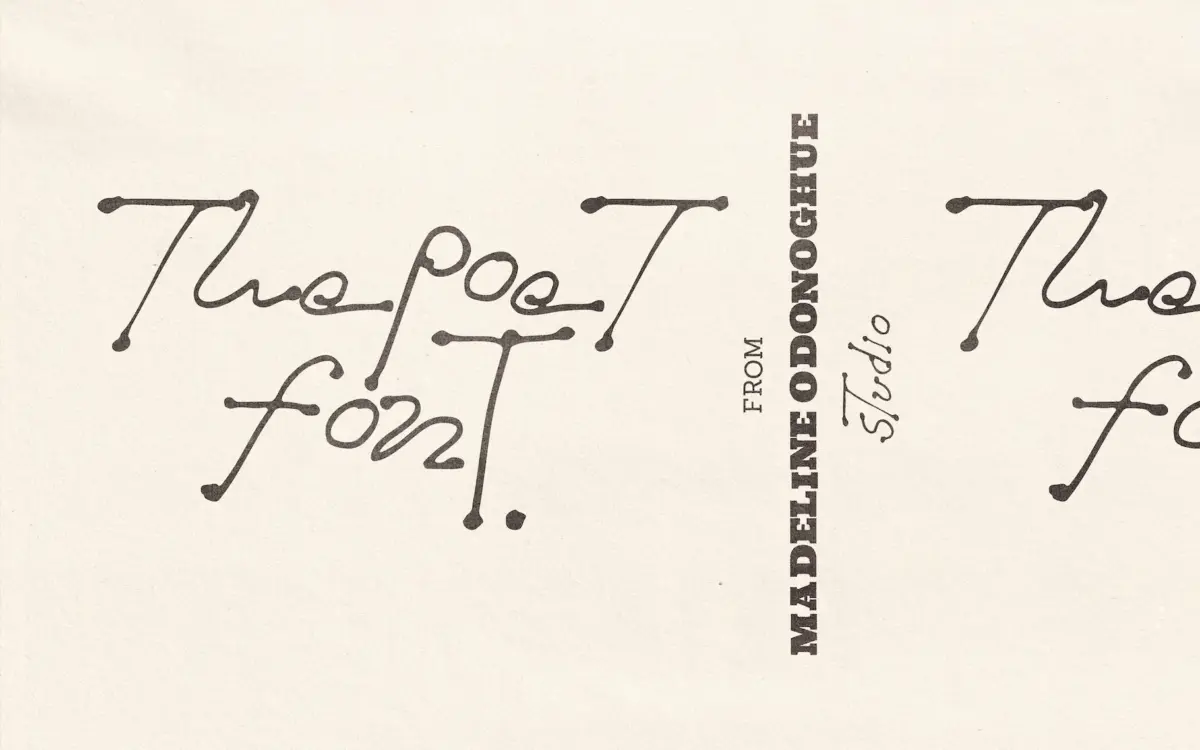 The poeT
fonT.
FROM
MADELINE ODONOGHUE
sTudio
The
fo